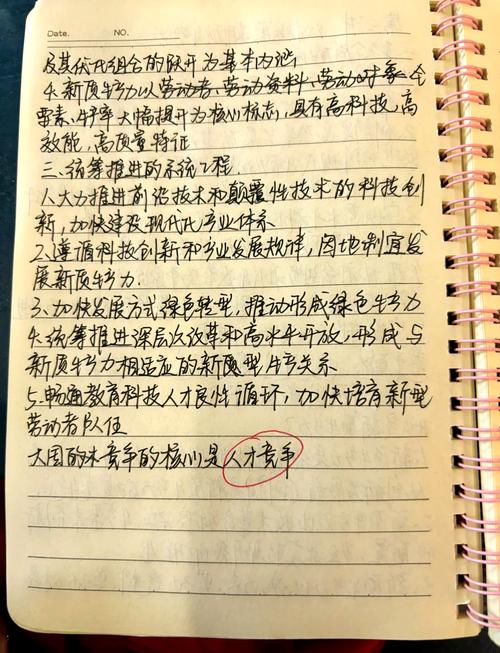 Date.  NO.
及其优化组合的跃升为基本内涵
4.新质生产力以劳动者、劳动资料、劳动对象全
要素生产率大幅提升为核心标志,具有高科技,高
效能,高质量特征
三.统筹推进的系统工程.
1.大力推进前沿技术和颠覆性技术的科技创
新,加快建设现代化产业体系
2.遵循科技创新和产业发展规律,因地制宜发
展新质生产力.
3.加快发展方式绿色转型,推动形成绿色生产力
4.统筹推进深层次改革和高水平开放,形成与
新质生产力相适应的新型生产关系
5.畅通教育科技人才良性循环,加快培育新型
劳动者队伍
大国的未竞争的核心是人才竞争